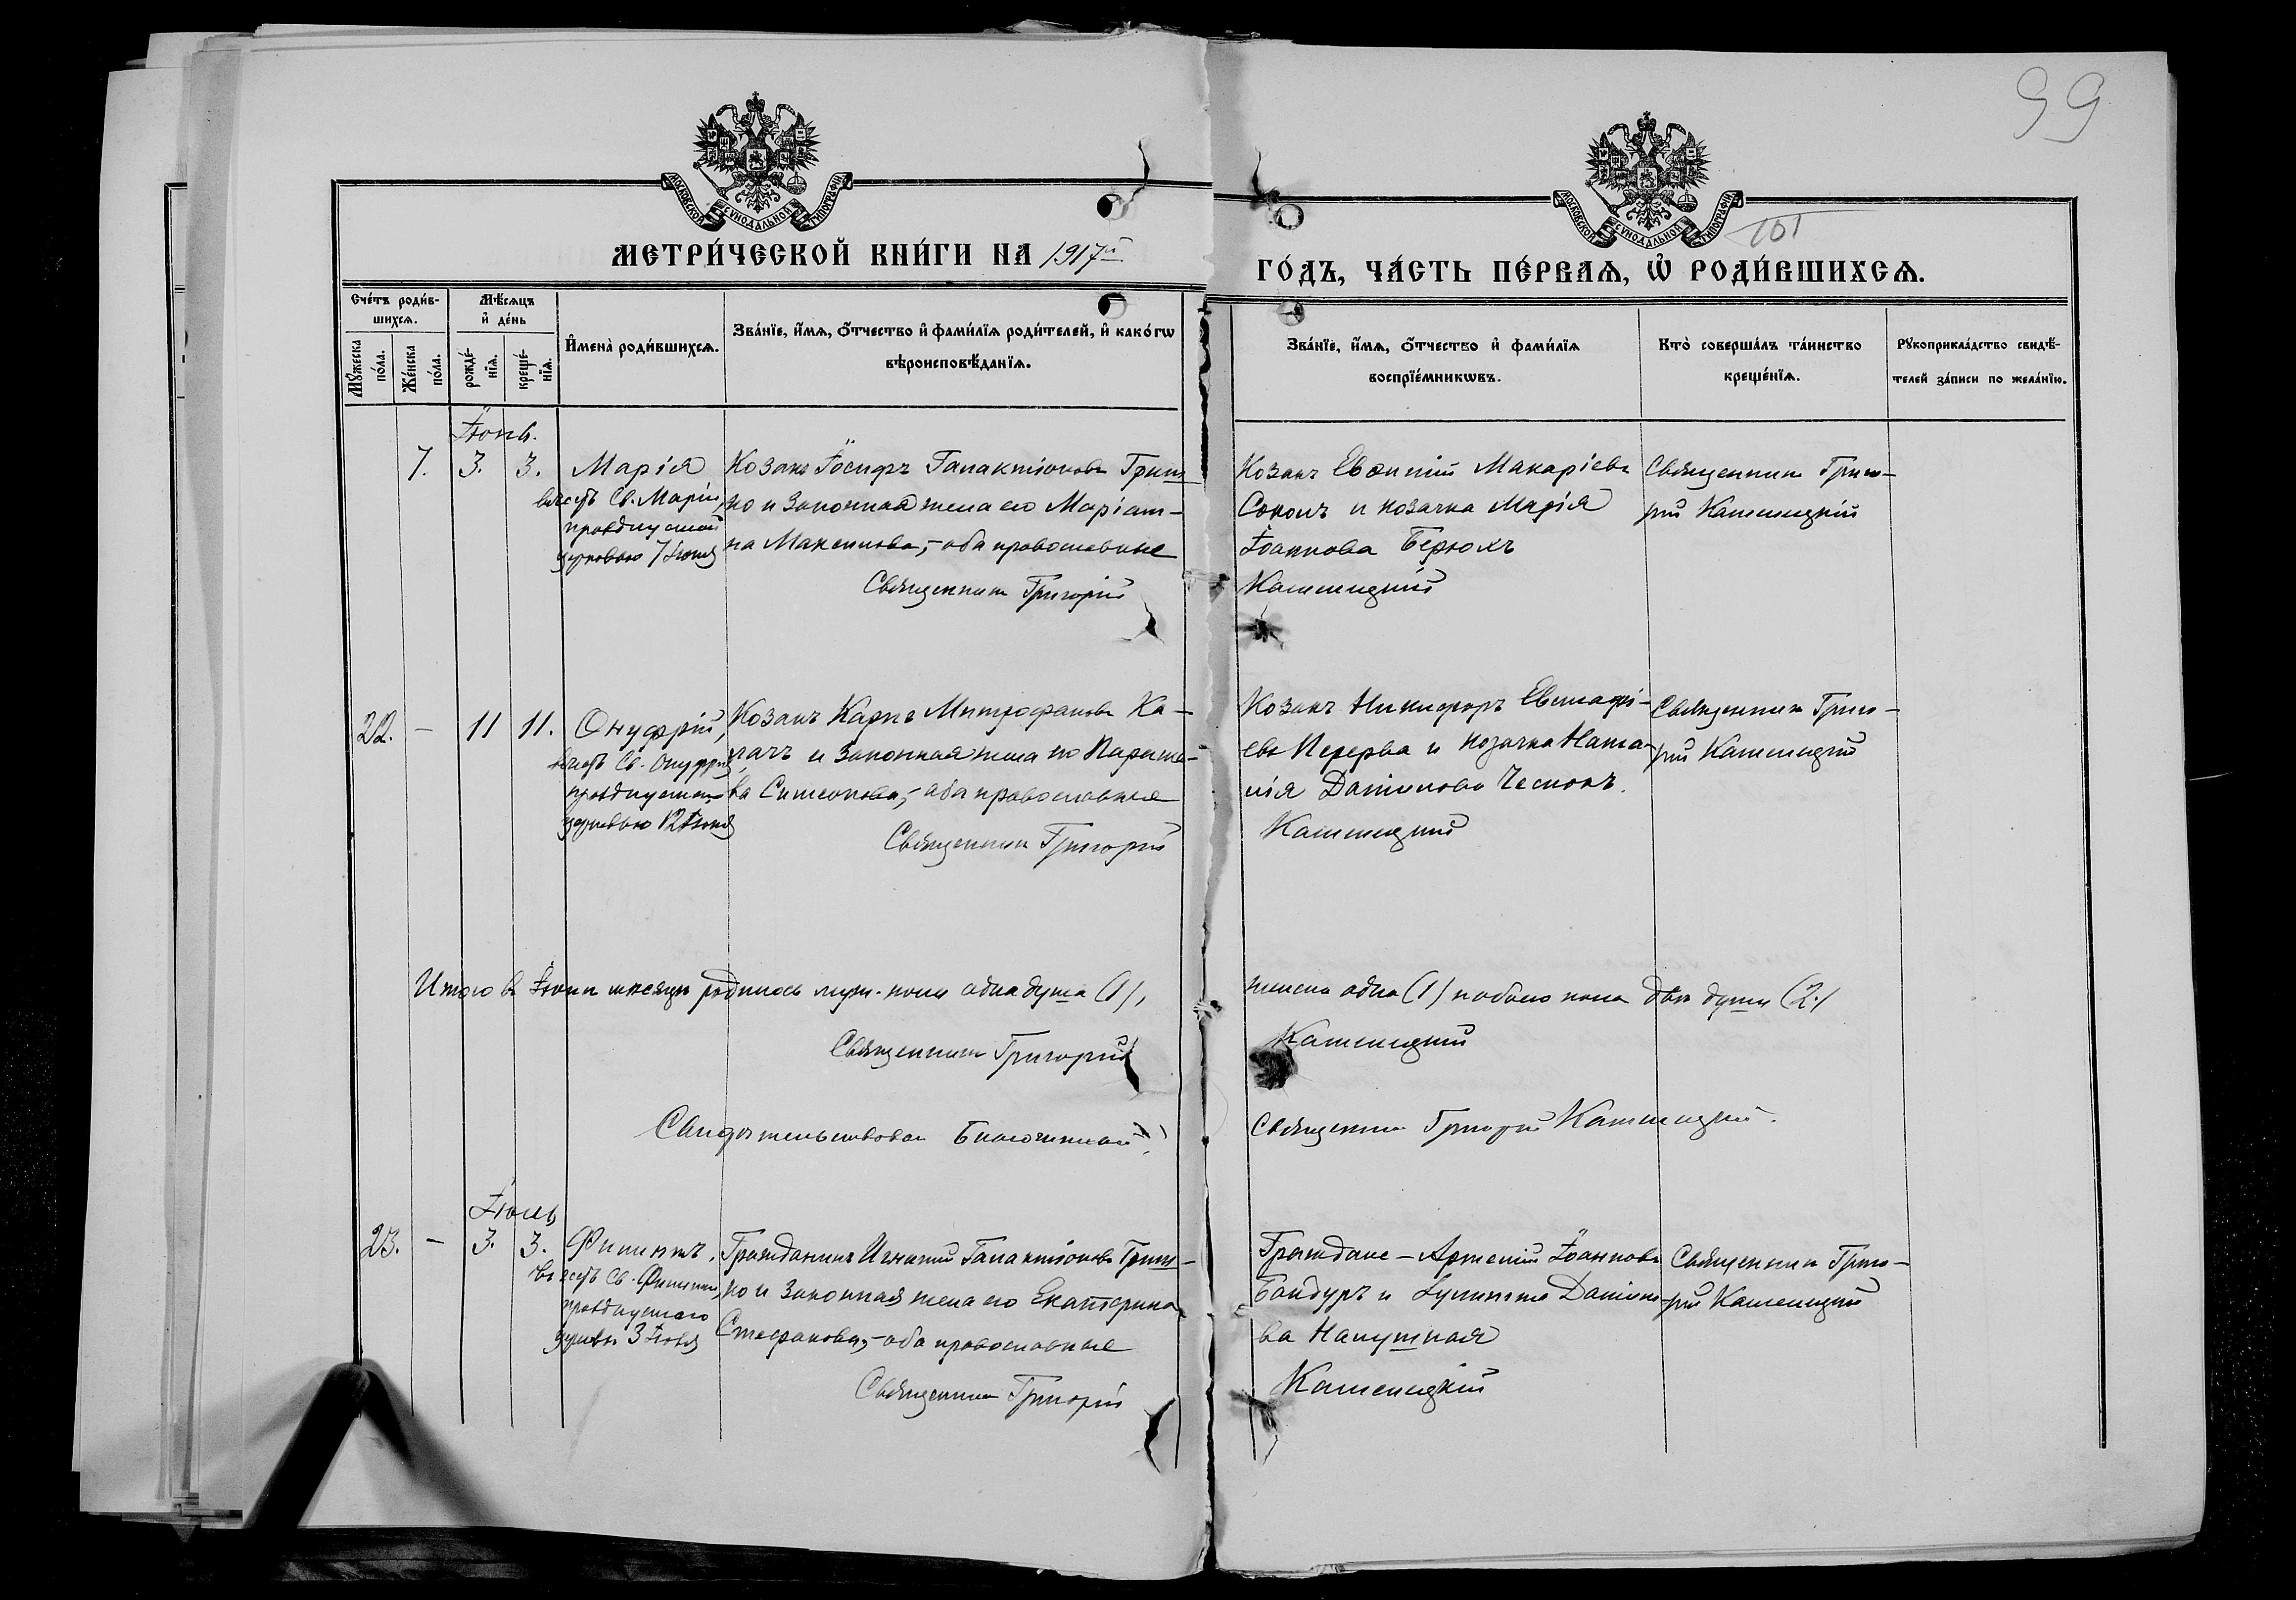 99
МОСКОВСКОЙ СѴНОДАЛЬНОЙ ТИПОГРАФІИ
МОСКОВСКОЙ СѴНОДАЛЬНОЙ ТИПОГРАФІИ
101
МЕТРИ́ЧЕСКОЙ КНИ́ГИ НА 1917й
ГО́ДЪ, ЧА́СТЬ ПЕ́РВАѦ, Ѽ РОДИ́ВШИХСѦ.
Сче́тъ роди́в-
шихсѧ.
Мѣ́сѧцъ
и҆ де́нь
И҆мена̀ роди́вшихсѧ.
Зва́нїе, и҆́мѧ, о҆́тчество и҆ фами́лїѧ роди́телей, и҆ како́гѡ
вѣроисповѣ́данїѧ.
Мꙋ́жеска
по́ла.
Же́нска
по́ла.
рожде́-
нїѧ.
креще́-
нїѧ.
Зва́нїе, и҆́мѧ, о҆́тчество и҆ фами́лїѧ
воспрїе́мникѡвъ.
Кто̀ соверша́лъ та́инство
креще́нїѧ.
Рꙋкоприкла́дство свидѣ́-
телей за́писи по жела́нїю.
Іюнь.
7. 3. 3. Марія
въ честь Св. Маріи,
празднуемой
церковью 7 Іюня
Козакъ Іосифъ Галактіоновъ Гриш
ко и законная жена его Маріам-
на Максимова,- оба православные
Священникъ Григорій
Козакъ Евѳимій Макаріевъ
Соколъ и козачка Марія
Іоаннова Берюхъ
Каменецкій
Священникъ Григо-
рій Каменецкій
22. - 11 11. Онуфрій,
въ честь Св. Онуфрія
празднуемаго
церковью 12 Іюня
Козакъ Карпъ Митрофановъ Ка-
лачъ и законная жена его Параске-
ва Симеонова,- оба православные
Священникъ Григорій
Козакъ Никифоръ
евъ Перерва и козачка Ната-
лія Даміанова Чеснокъ.
Каменецкій
Священникъ Григо-
рій Каменецкій
Итого въ Іюнѣ мѣсяцѣ родилось муж. пола одна душа (1),
женска одна (1) и обоего пола двѣ души (2.)
Священникъ Григорій
Каменецкій
Свидѣтельствовалъ Благочинный,
Священникъ Григорій Каменецкій.
Іюль
23. - 3. 3. Филиппъ,
въ честь Св. Филиппа,
празднуемаго
церковью 3 Іюля
Гражданинъ Игнатій Галактіоновъ Гриш-
ко и законная жена его Екатерина
Стефанова,- оба православные
Священникъ Григорій
Граждане - Артемій Іоанновъ
Бандуръ и Даміано-
ва Капушная
Каменецкій
Священникъ Григо-
рій Каменецкій